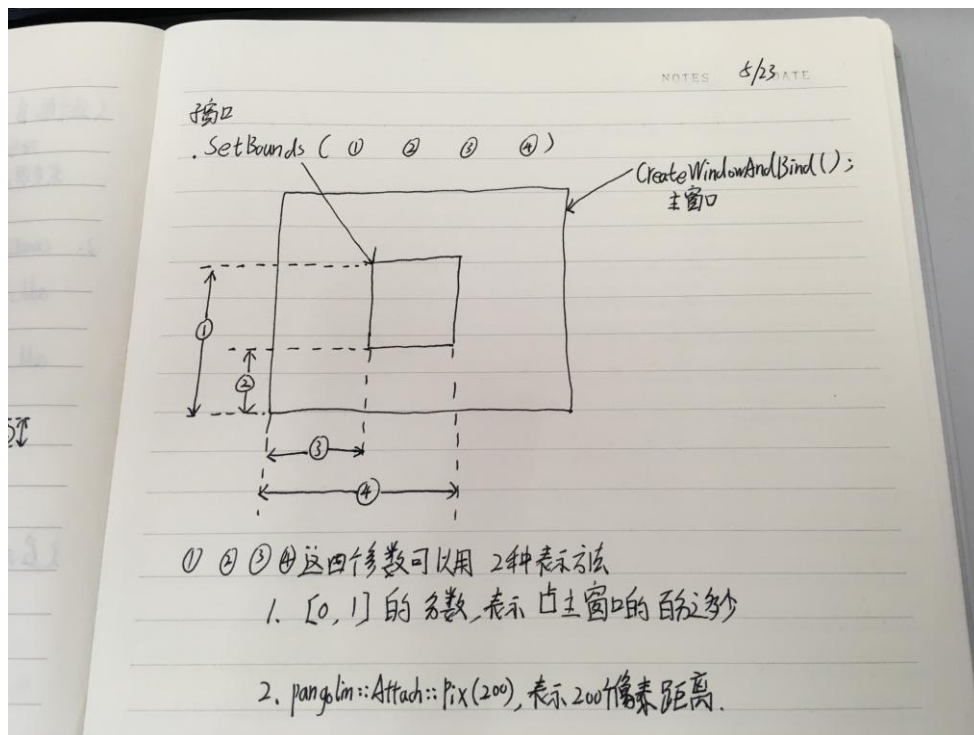 NOTES 5/23 DATE
子窗口
. SetBounds ( ① ② ③ ④ )
CreateWindowAndBind();
主窗口
①
②
③
④
① ② ③ ④ 这四个参数可以用 2种表示方法
1. [0, 1] 的 分数, 表示 占主窗口的 百分之多少
2. pangolin::Attach::Pix(200), 表示 200个像素 距离.